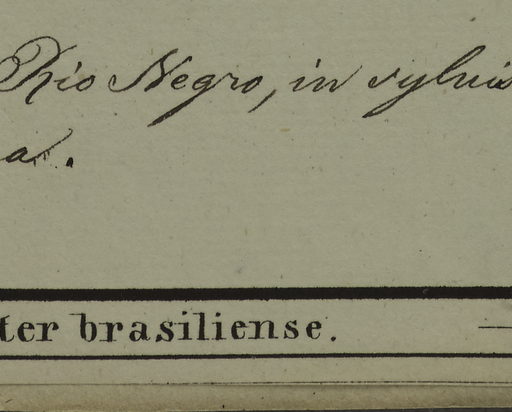 Rio Negro, in sylvis
a.
ter brasiliense.